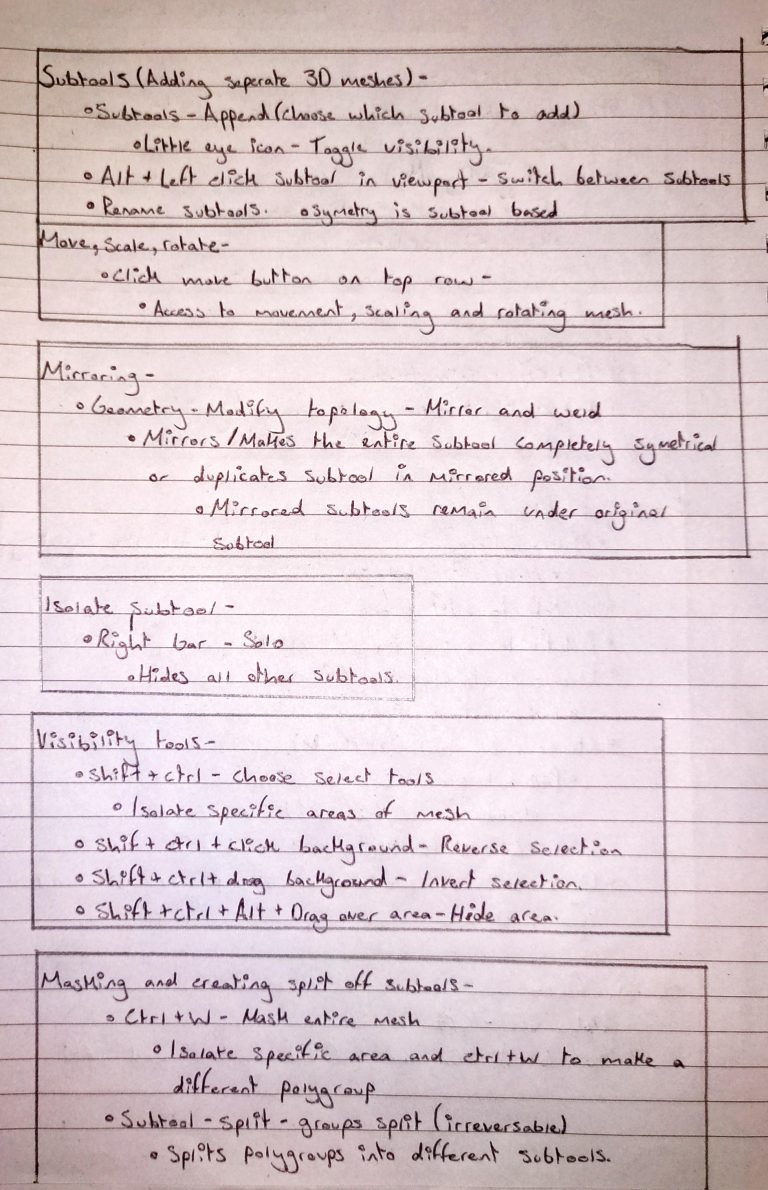 Subtools (Adding seperate 3D meshes) -
• Subtools - Append (choose which subtool to add)
• Little eye icon - Toggle visibility.
• Alt + Left click subtool in viewport - switch between subtools
• Rename subtools. • symetry is subtool based
Move, scale, rotate -
• Click move button on top row -
• Access to movement, scaling and rotating mesh.
Mirroring -
• Geometry - Modify topology - Mirror and weld
• Mirrors/Makes the entire subtool completely symetrical
or duplicates subtool in mirrored position.
• Mirrored subtools remain under original
subtool
Isolate subtool -
• Right bar - Solo
• Hides all other subtools.
Visibility tools -
• Shift + ctrl - Choose select tools
• Isolate specific areas of mesh
• Shif + ctrl + click background - Reverse selection
• Shift + ctrl + drag background - Invert selection.
• Shift + ctrl + Alt + Drag over area - Hide area.
Masking and creating split off subtools -
• Ctrl + W - Mask entire mesh
• Isolate specific area and ctrl + W to make a
different polygroup
• Subtool - split - groups split (irreversable)
• Splits polygroups into different subtools.